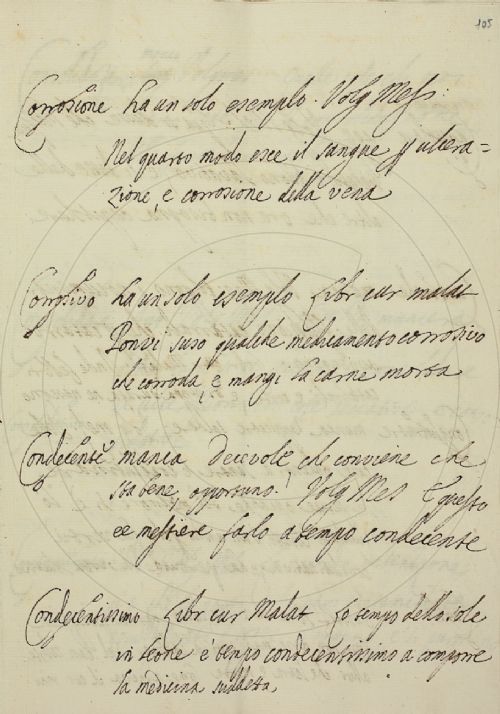 105
Corrosione ha un solo esempio. Volg Mes:
Nel quarto modo esce il sangue p ulcera=
zione, e corrosione della vena
Corrosivo ha un solo esempio Libr cur malat
Ponvi suso qualche medicamento corrosivo
che corroda, e mangi la carne morta
Condecente manca Decevole che conviene che
sta bene, opportuno. Volg Mes E questo
ee mestiere farlo a tempo condecente
Condecentissimo Libr cur Malat Lo tempo dello sole
in leone è tempo condecentissimo a comporre
la medicina suddetta.